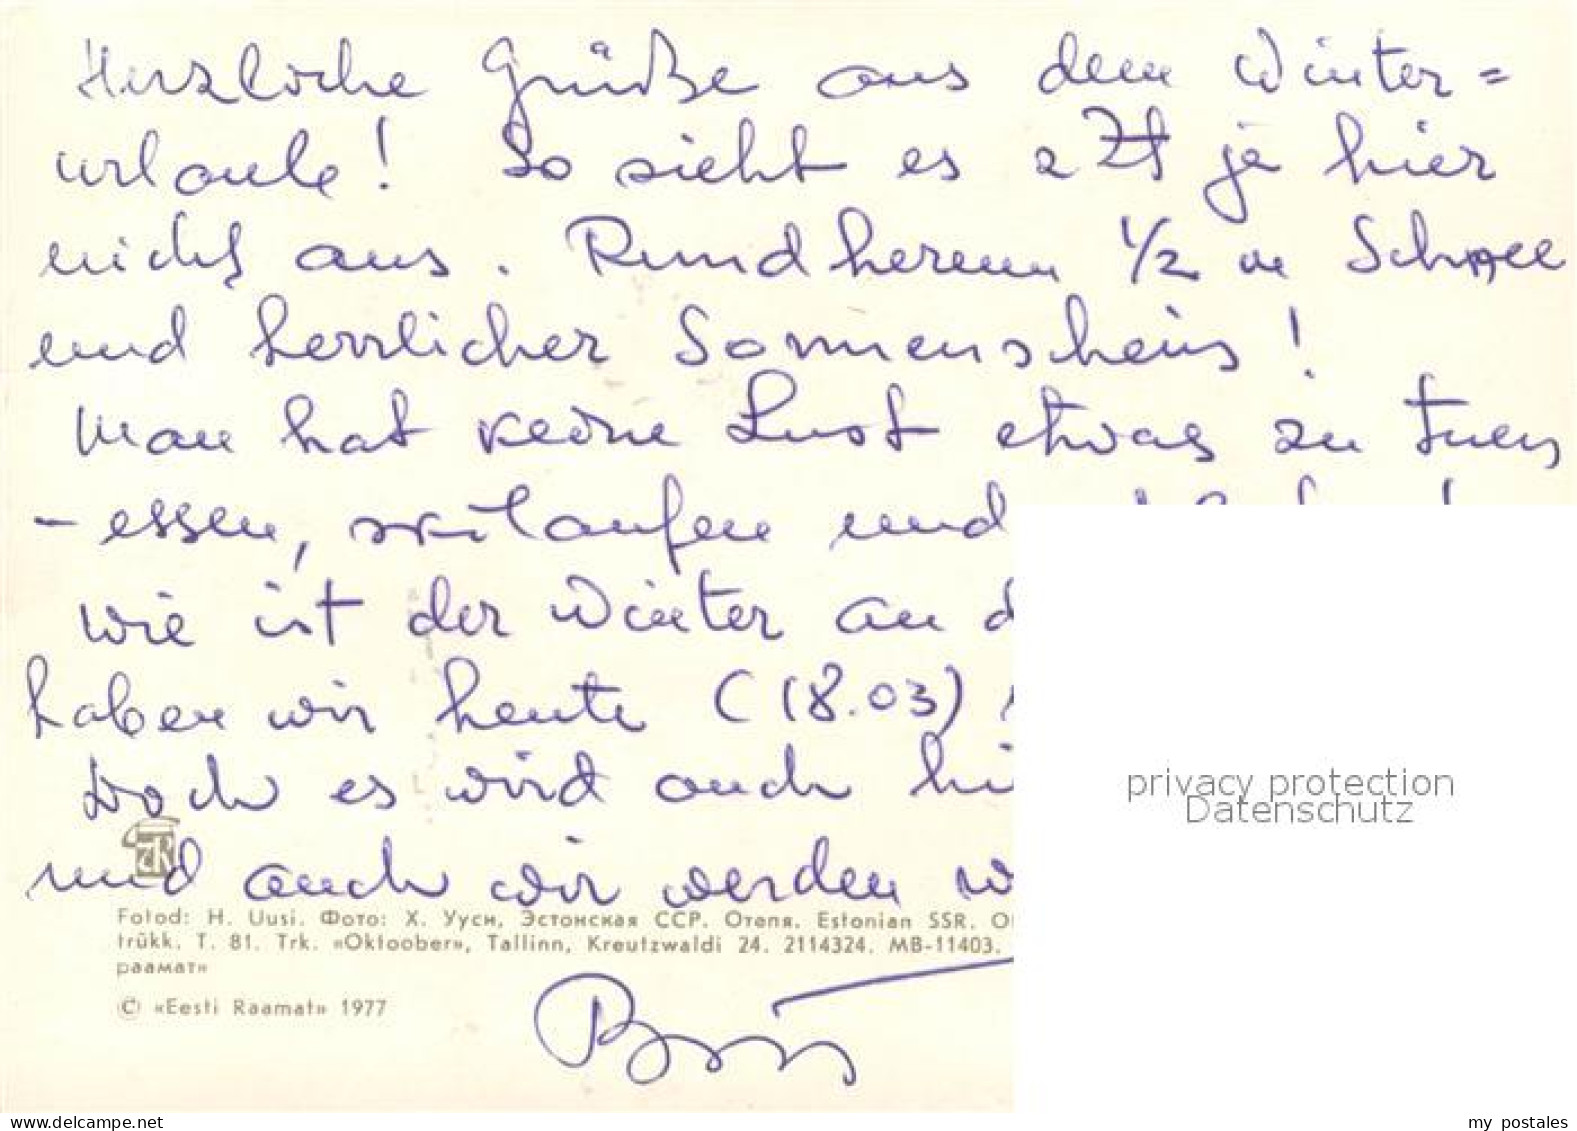 Herzliche Grüße aus dem Winter=
urlaub! So sieht es z Zt ja hier
nicht aus. Rundherum 1/2 m Schnee
und herrlicher Sonnenschein!
Man hat keine Lust etwas zu tuen
- essen, skilaufen und
Wie ist der Winter an d
haben wir heute (18.03)
Doch es wird auch hi
und auch wir werden w
Fotod: H. Uusi. Фото: Х. Ууси, Эстонская ССР. Отепя. Estonian SSR. O
trükk. T. 81. Trk. «Oktoober», Tallinn, Kreutzwaldi 24. 2114324. MB-11403.
раамат»
© «Eesti Raamat» 1977
privacy protection
Datenschutz
delcampe.net
my_postales